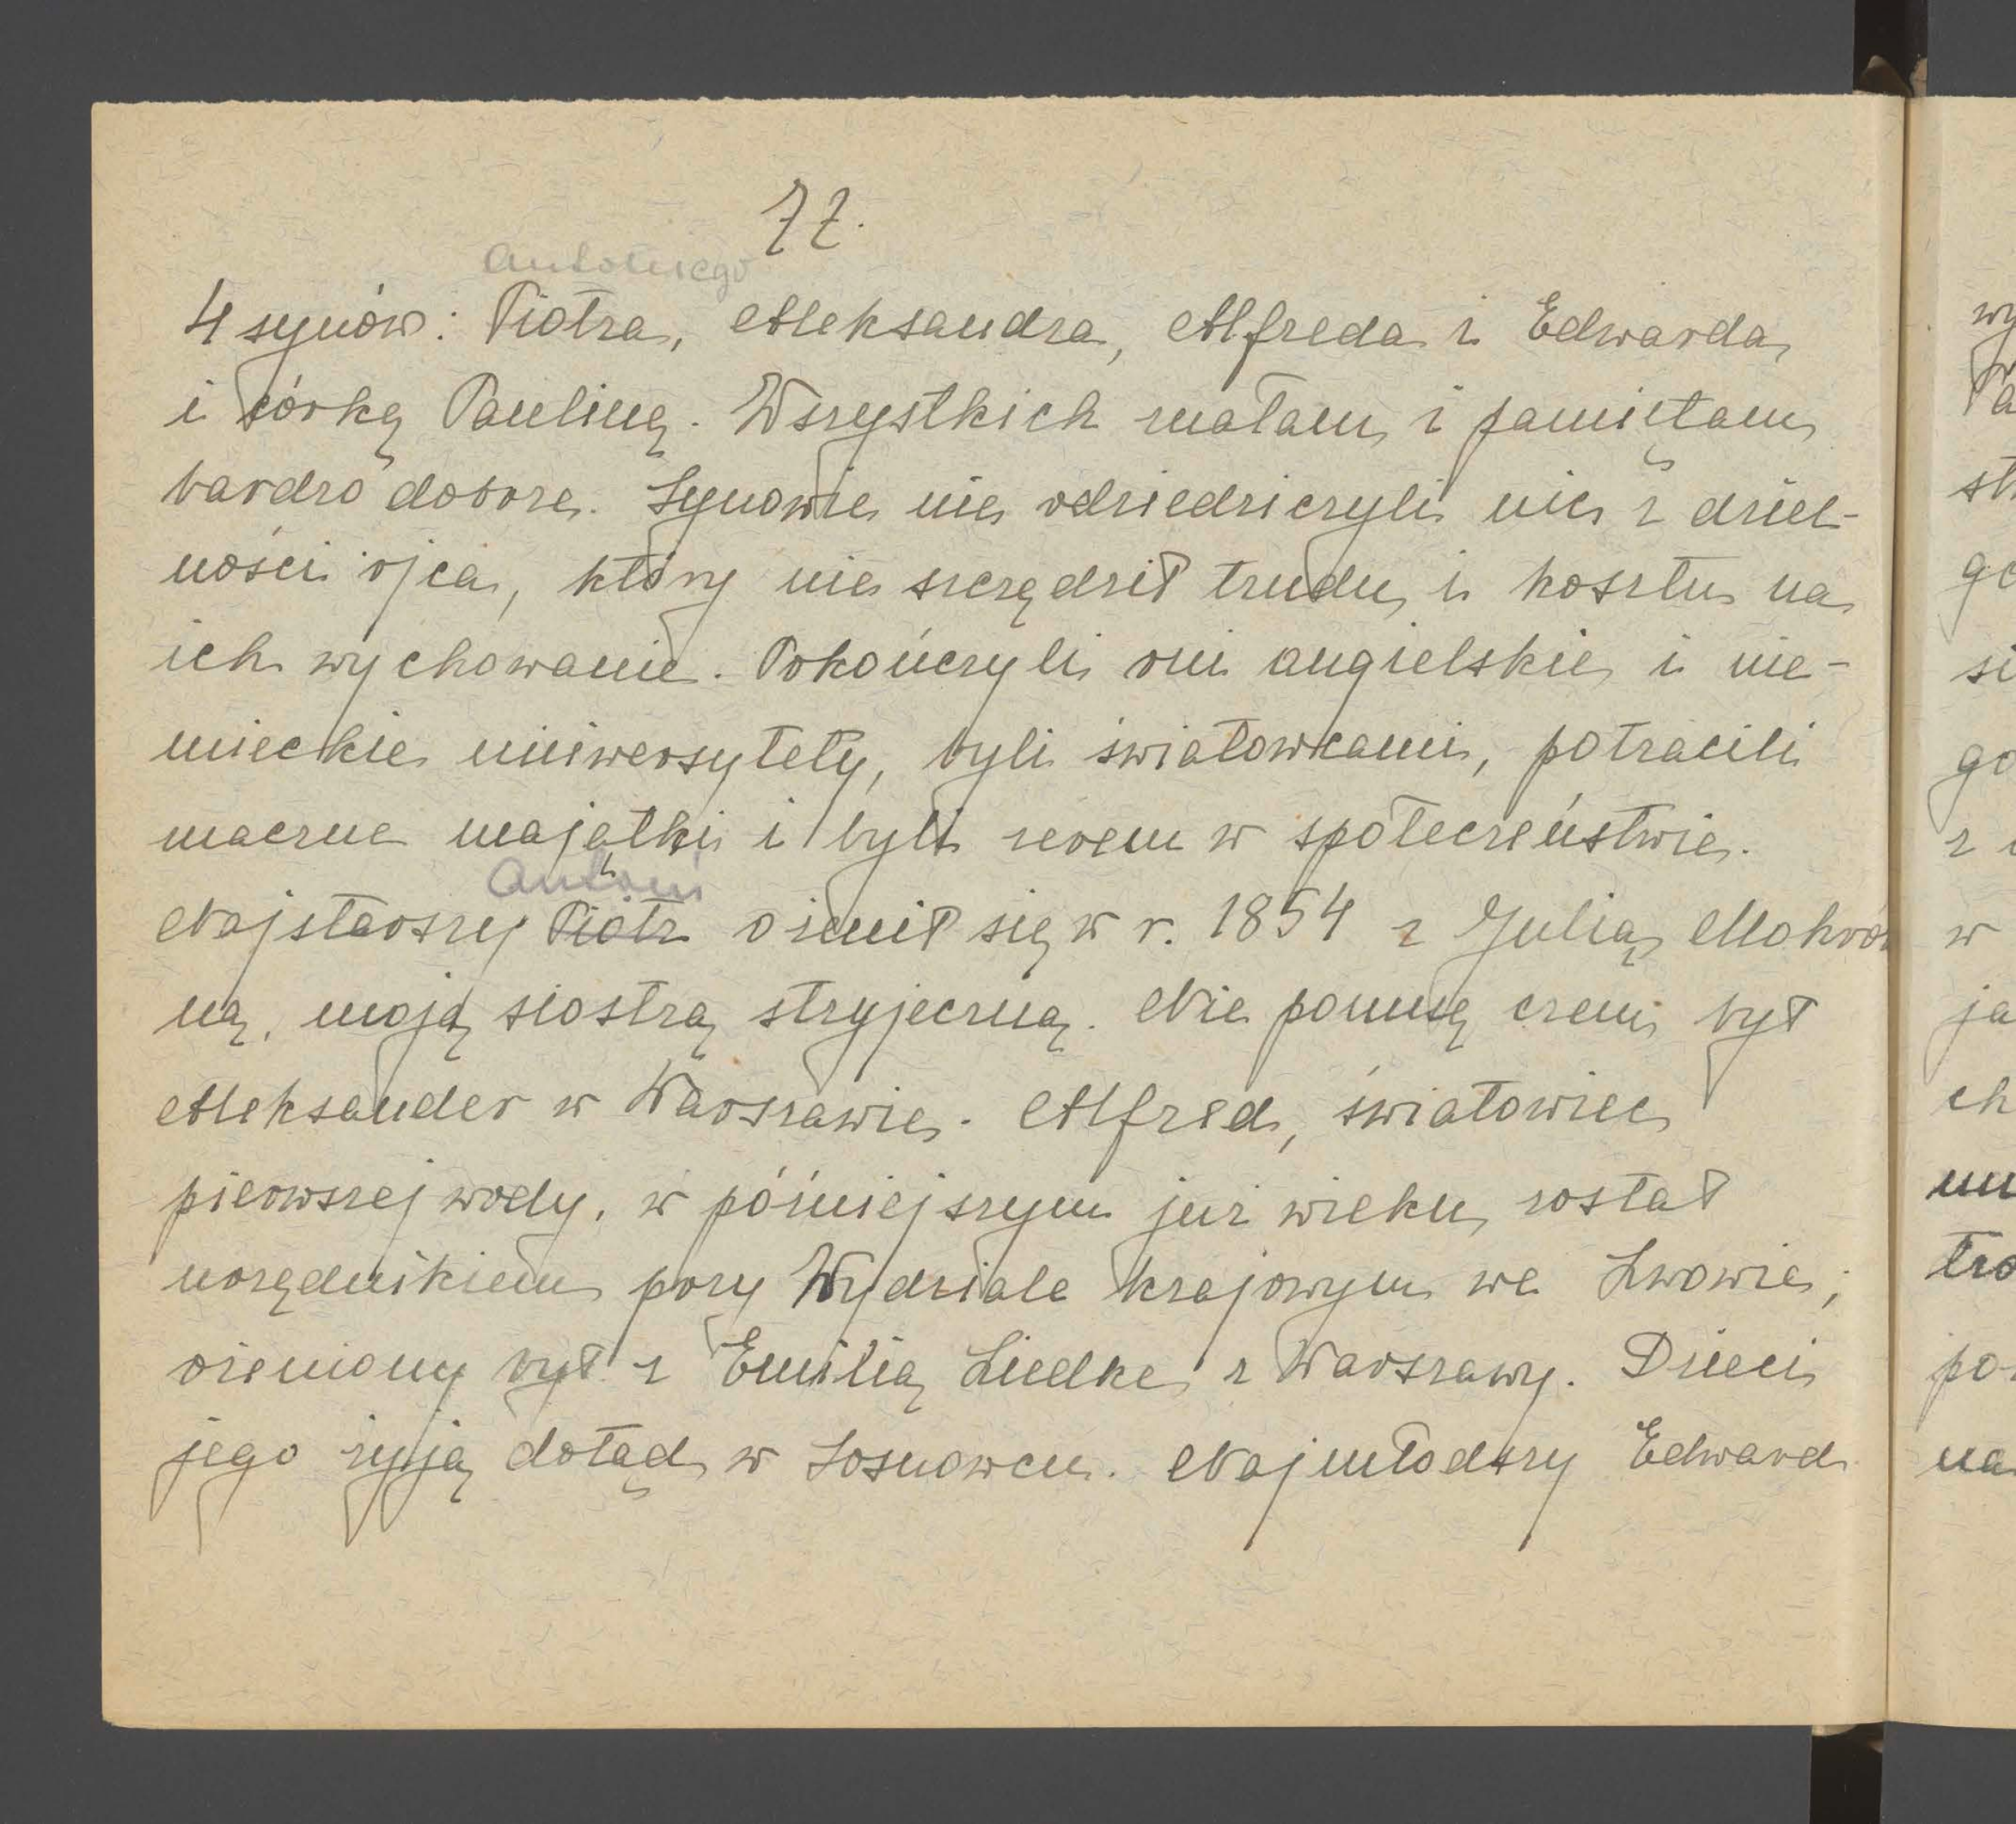 77.
Antoniego
4 synów: Piotra, Aleksandra, Alfreda i Edwarda
i córkę Paulinę. Wszystkich znałam i pamiętam
bardzo dobrze. Synowie nie odziedziczyli nic z dziel-
ności ojca, który nie szczędził trudu i kosztu na
ich wychowanie. Pokończyli oni angielskie i nie-
mieckie uniwersytety, byli światowcami, potracili
znaczne majątki i byli zerem w społeczeństwie.
Antoni
Najstarszy Piotr ożenił się w r. 1854 z Julią Mokro
ną, moją siostrą stryjeczną. Nie pomnę czem był
Aleksander w Warszawie. Alfred, światowiec
pierwszej wody, w późniejszym już wieku, został
urzędnikiem przy Wydziale krajowym we Lwowie;
ożeniony był z Emilią Liedke z Warszawy. Dzieci
jego żyją dotąd w Sosnowcu. Najmłodszy Edward
wy
st
go
si
go
z
w
ja
ch
tro
po
na